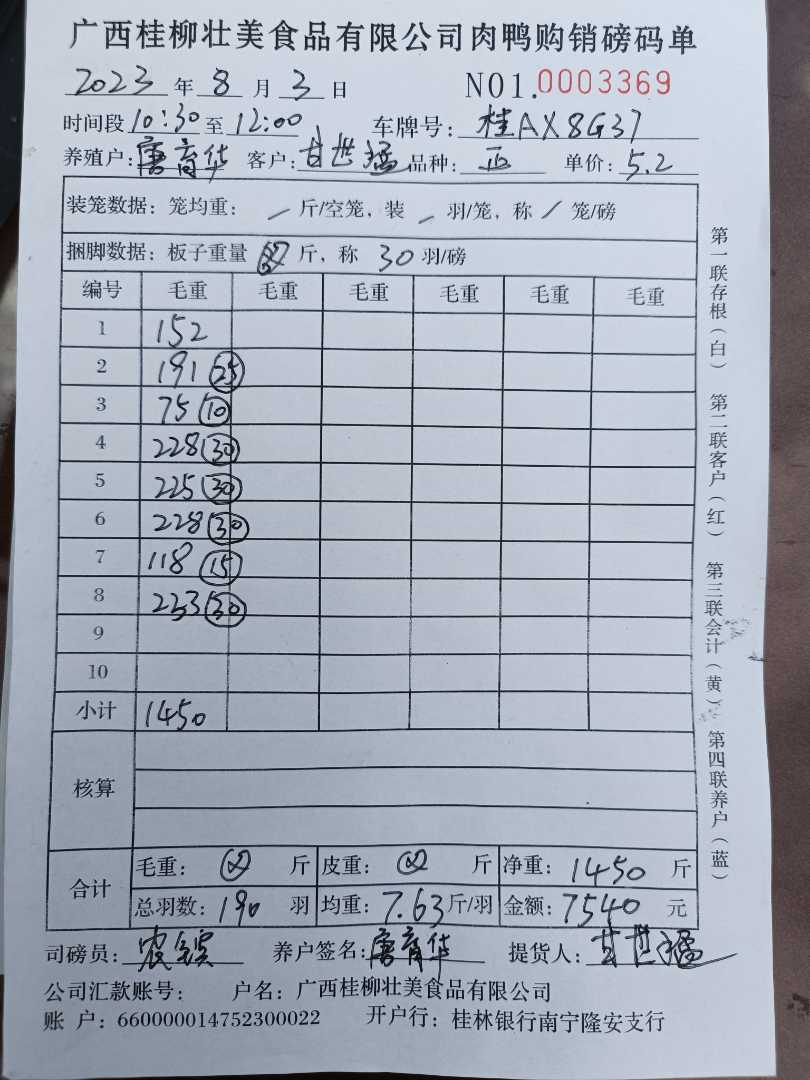 广西桂柳壮美食品有限公司肉鸭购销磅码单
2023 年 8 月 3 日 NO1.0003369
时间段 10:30 至 12:00 车牌号: 桂AX8G37
养殖户: 唐育华 客户: 甘世 品种: 正 单价: 5.2
装笼数据: 笼均重: / 斤/空笼, 装 / 羽/笼, 称 / 笼/磅
捆脚数据: 板子重量 斤, 称 30 羽/磅
编号 毛重 毛重 毛重 毛重 毛重 毛重
1 152
2 191 25
3 75 10
4 228 30
5 225 30
6 228 30
7 118 15
8 233 30
9
10
小计 1450
核算
合计 毛重: 斤 皮重: 斤 净重: 1450 斤
总羽数: 190 羽 均重: 7.63 斤/羽 金额: 7540 元
司磅员: 农 养户签名: 唐育华 提货人: 甘世
公司汇款账号: 户名: 广西桂柳壮美食品有限公司
账 户: 660000014752300022 开户行: 桂林银行南宁隆安支行
第一联存根(白) 第二联客户(红) 第三联会计(黄) 第四联养户(蓝)